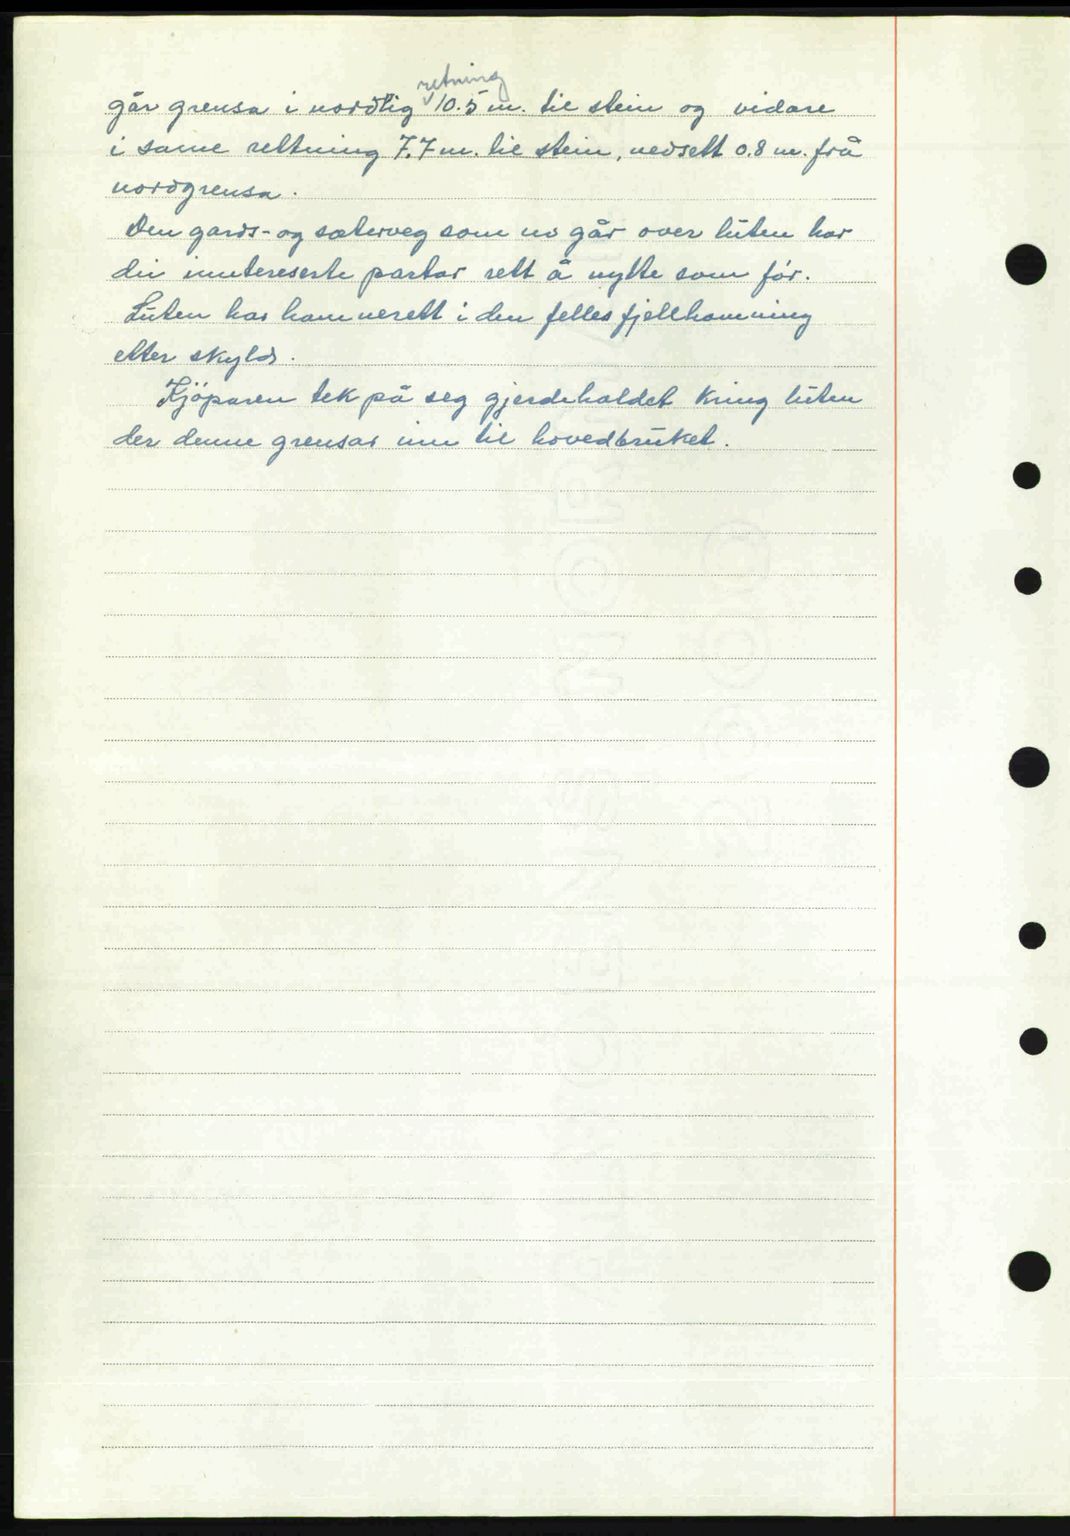 går grensa i nordlig retning 10.5 m. til stein og vidare
i same rettning 7.7 m. til stein, nedsett 0.8 m. frå
nordgrensa.
Den gards- og sæterveg som no går over luten har
dei inntereserte partar rett å nytte som før.
Luten har hamnerett i den felles fjellhamning
etter skyld.
Kjöparen tek på seg gjerdehaldet kring luten
der denne grensar inn til hovedbruket.